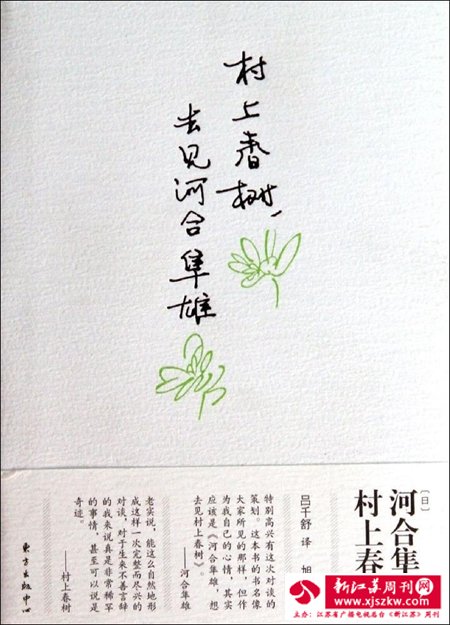 村上春树,
去见河合隼雄
[日]
河合隼
村上春
吕千舒 译 旭
特别高兴有这次对谈的
策划。这本书的书名像
大家所见的那样,但作
为我自己的心情,其实
应该是《河合隼雄,想
去见村上春树》。
——河合隼雄
老实说,能这么自然地形
成这样一次完整而尽兴的
对谈,对于生来不善言辞
的我来说真是非常稀罕
的事情,甚至可以说是
奇迹。
——村上春树
东方出版中心
新江苏周刊网
www.xjszkw.com
主办:江苏省广播电视总台《新江苏》周刊